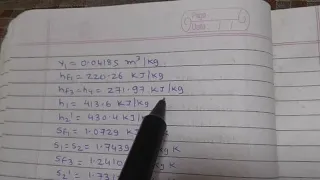 v₁ = 0.06185 m³/kg
hf₁ = 220.26 KJ/kg
hf₃ = h₄ = 271.97 KJ/kg
h₁ = 413.6 KJ/kg
h₂' = 430.4 KJ/kg
Sf₁ = 1.0729 KJ/
S₁ = S₂ = 1.7439
Sf₃ = 1.2410
S₂' = 1.731
K